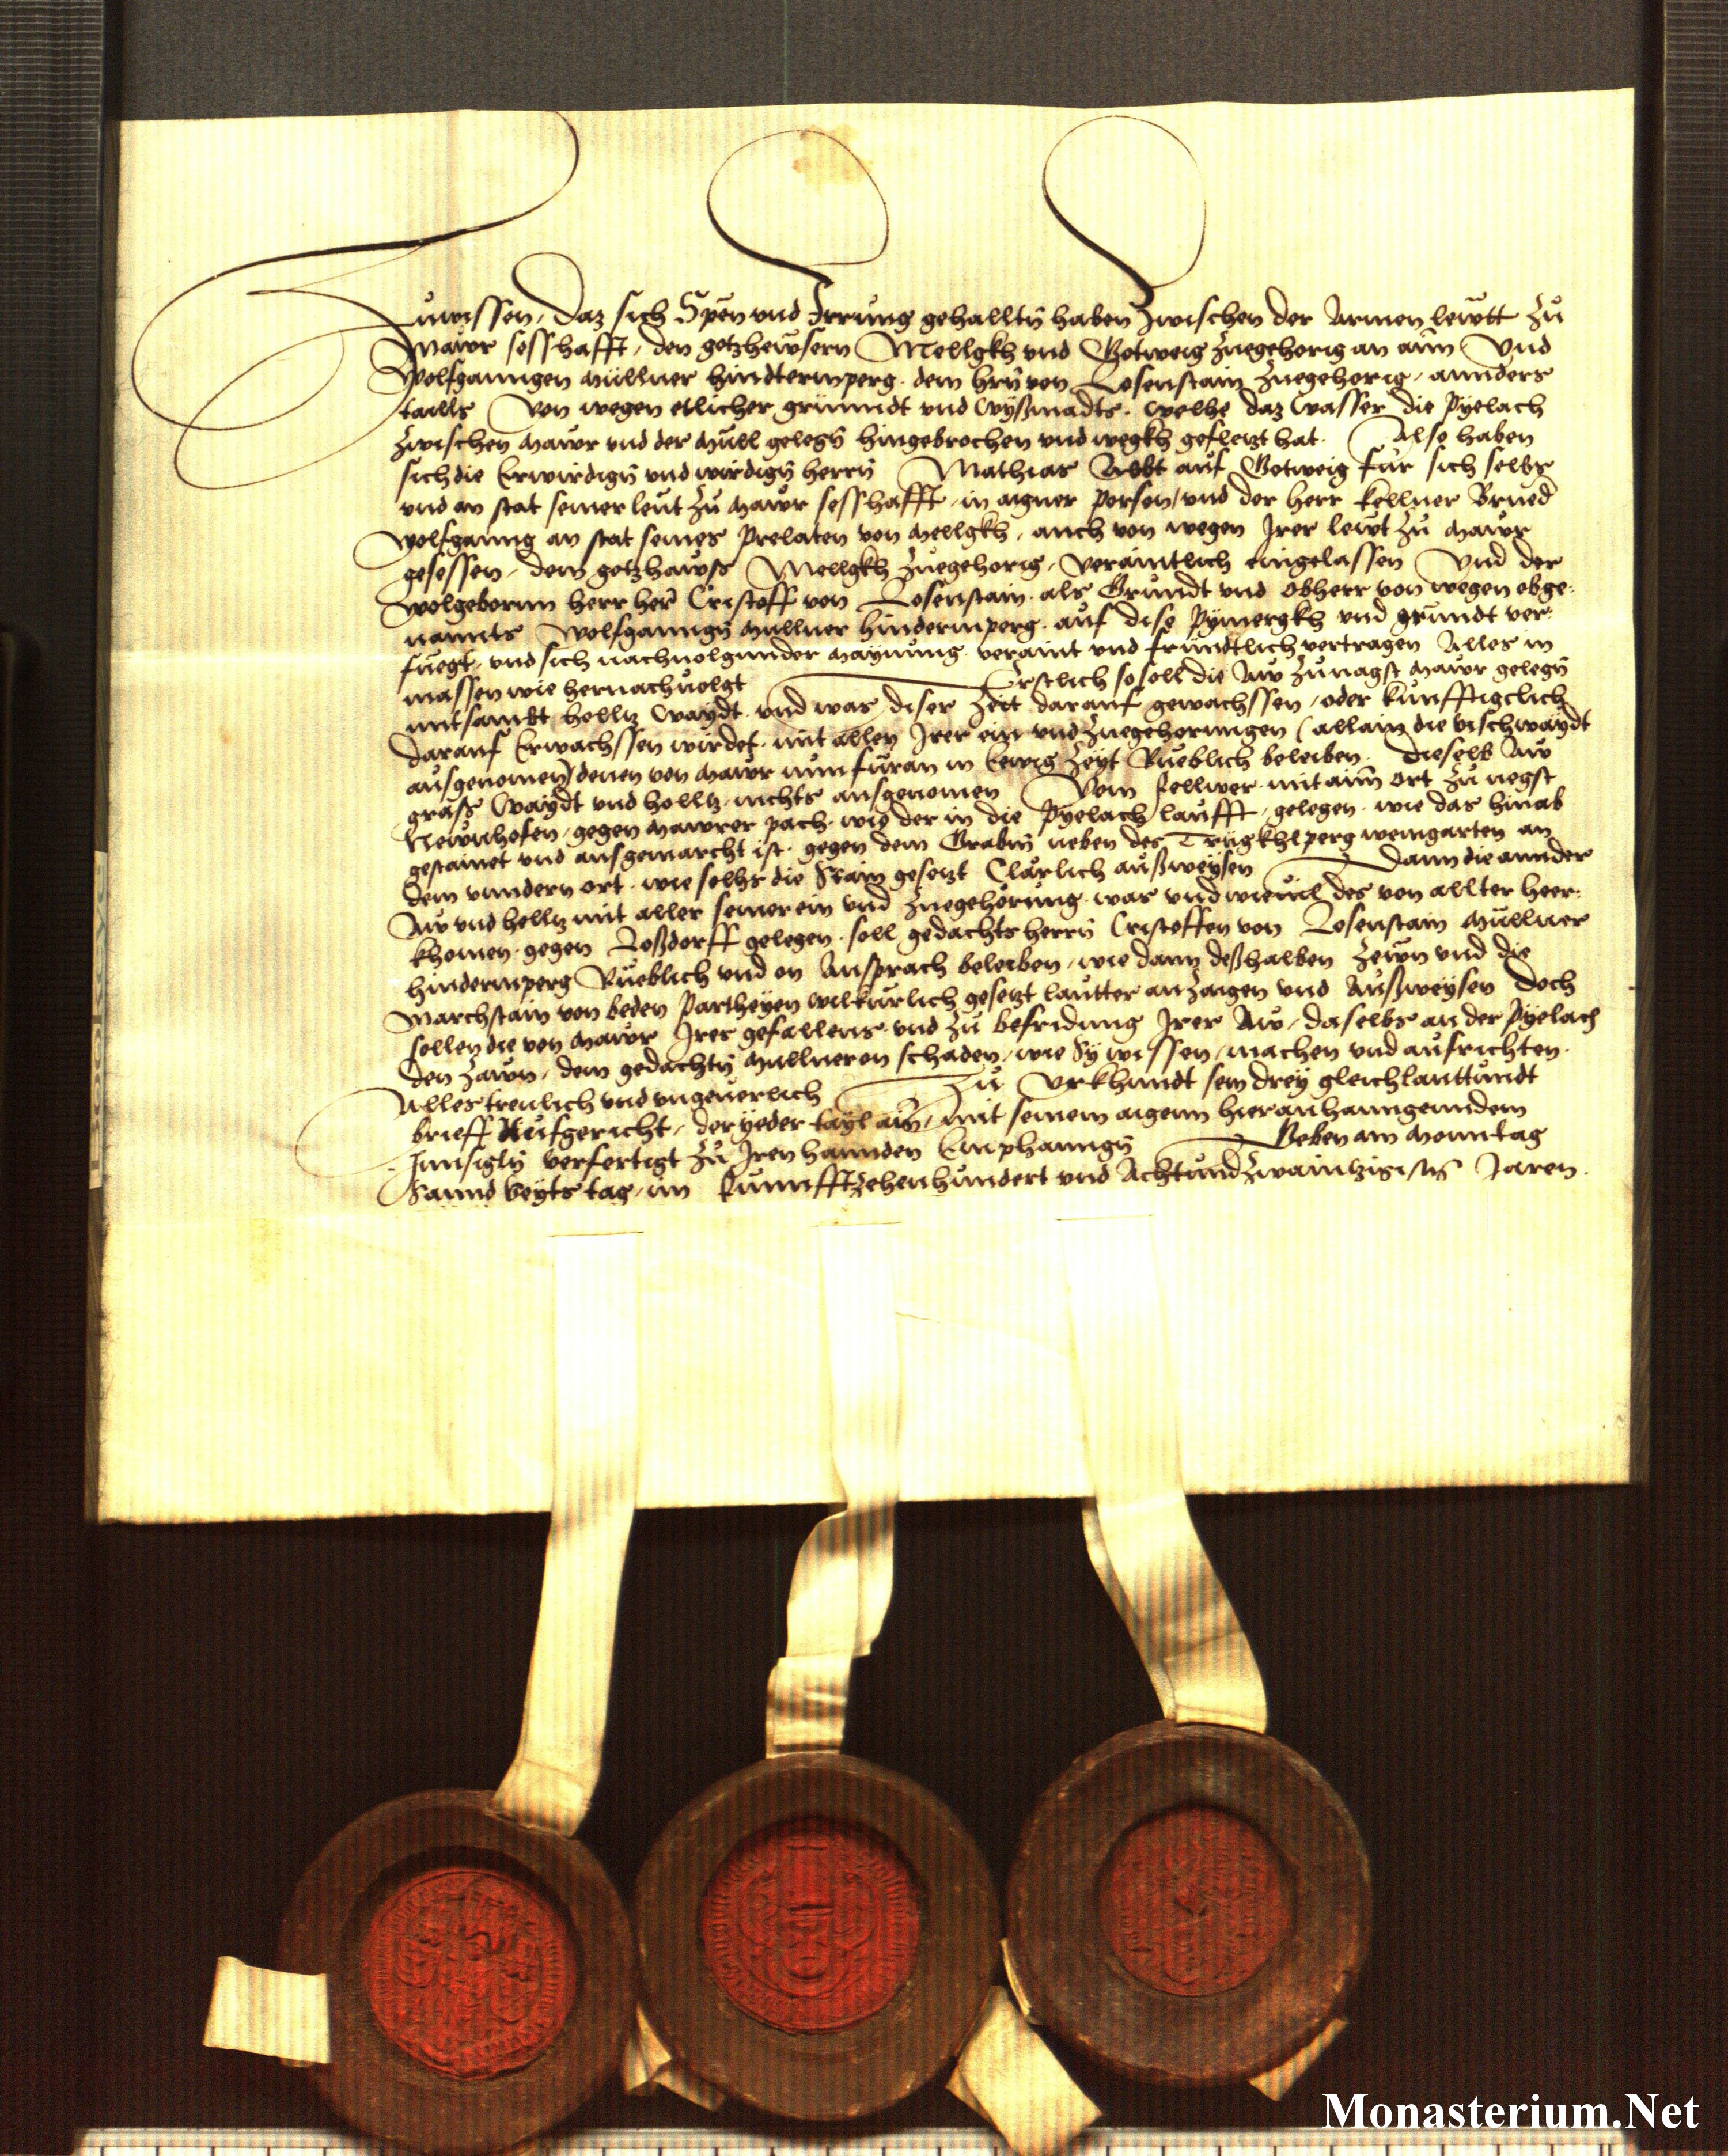 Zuwissen, daz sich Spen vnd Irrung gehalltn̄ haben Zwischen der Armen lewtt zů
Mawr sesshafft, den gotzhewsern Mellgkh vnd Gotweig Zuegehorig an ainn Vnd
Wolfganngen Müllner hindtermperg. dem hrn̄ von Losenstain Zuegehorig, annders
taills Von wegen etlicher grünndt vnd Wyßmadts. Welhe daz Wasser die Pyelach
Zwischen Mawr vnd der Müll gelegn̄ hingebrochen vnd wegkh gefletzt hat. Also haben
sich die Erwirdign̄ vnd wirdign̄ herrn̄ Mathias Abbt auf Gotweig für sich selbs
vnd an stat seiner leut zů Mawr sesshafft, in aigner Person, vnd der herr kellner Brued̄
Wolfganng an stat seines Prelaten von Mellgkh, auch von wegen Irer lewt zů Mawr
gesessen, dem gotzhawss Mellgkh Zuegehorig, veraintlich eingelassen Vnd der
Wolgebornn herr her̄ Cristoff von Losenstain. als Grundt vnd Obherr von wegen obge-
nannts Wolfganngn̄ Mullner hindermperg. auf dise Pymergkh vnd grundt ver-
fuegt, vnd sich nachuolgunder Maynung. veraint vnd fründtlich vertragen Alles in
massen wie hernachuolgt Erstlich so soll die Aw zunagst Mawr gelegn̄
mitsambt holltz Waydt. vnd was diser Zeit darauf gewachssen, oder kunfftigclich
darauf Erwachssen wirdet. mit allen Irer ein vnd Zuegehorungen (allain die vischwaydt
ausgenomen) denen von Mawr nun füran in Ewig Zeyt Rueblich beleiben. dieselb Aw
grass Waydt vnd holltz. nichts ausgenomen Vom mit aim ort zu negst
Newnhofen, gegen Mawrer pach. wie der in die Pyelach laufft, gelegen. wie das hinab
gestainet vnd ausgemarcht ist. gegen dem Grabm̄ neben des weingarten an
dem anndern ort. wie solhs die Stain gesetzt Clarlich außweysen Dann die annder
Aw vnd holltz mit aller seiner ein vnd Zuegehörung. was vnd wieuil des von allter heer-
khomen. gegen Loßdorff gelegen. soll gedachts herrn̄ Cristoffen von Losenstain Mullner
hindermperg Rueblich vnd on Ansprach beleiben, wie dann deßhalben Zewn vnd die
Marchstain von beden Partheyen wilkurlich gesetzt lautter anzaigen vnd Außweysen Doch
sollen die von Mawr Ires gefallens. vnd zů befridung Irer Aw, daselbs an der Pyelach
den Zawn, dem gedachtn̄ Mullner on schaden, wie Sy wissen, machen vnd aufrichten.
Alles treulich vnd vngeuerlich Zu Vrkhundt sein drey gleichlauttundt
brieff Aufgericht, der yeder tayl ain̄, mit seinem aigenn hieranhanngenndem
Innsigln̄ verfertigt zů Iren hannden Emphanngn̄ Geben am Monntag
Sannd Veyts tag, im Funnfftzehenhundert vnd Achtundzwaintzigistn̄ Jaren.
Monasterium.Net